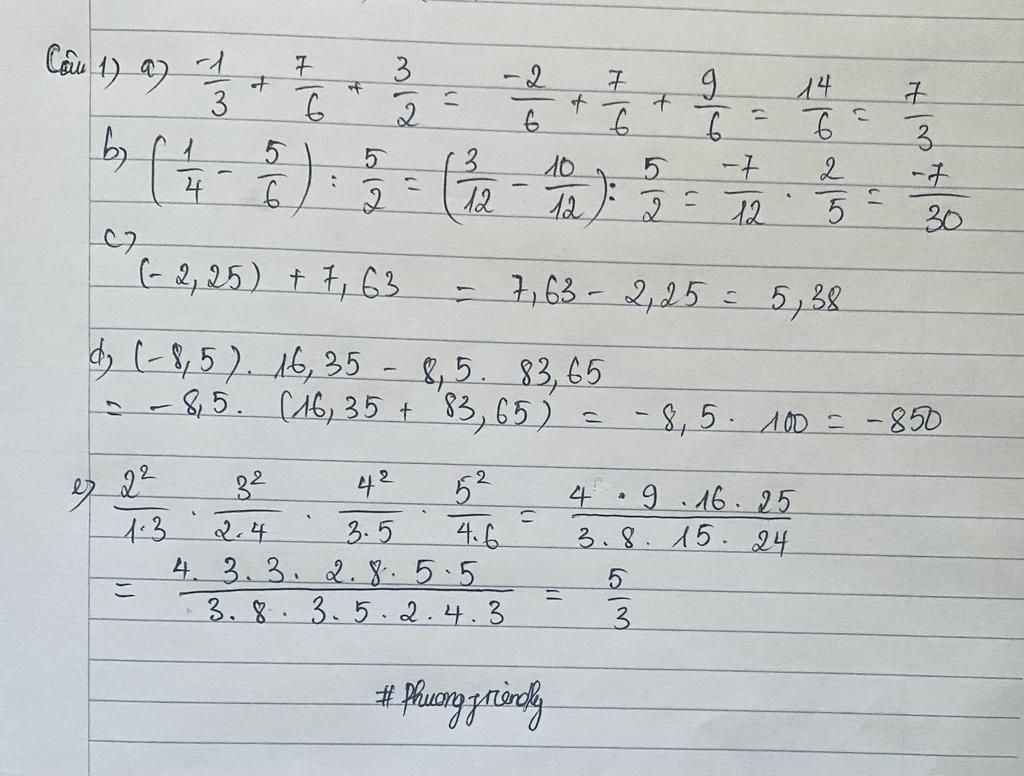 Câu 1) a) \frac{-1}{3} + \frac{7}{6} + \frac{3}{2} = \frac{-2}{6} + \frac{7}{6} + \frac{9}{6} = \frac{14}{6} = \frac{7}{3}
b) (\frac{1}{4} - \frac{5}{6}) : \frac{5}{2} = (\frac{3}{12} - \frac{10}{12}) : \frac{5}{2} = \frac{-7}{12} . \frac{2}{5} = \frac{-7}{30}
c)
(-2,25) + 7,63 = 7,63 - 2,25 = 5,38
d) (-8,5). 16,35 - 8,5. 83,65
= -8,5. (16,35 + 83,65) = -8,5. 100 = -850
e) \frac{2^2}{1.3} . \frac{3^2}{2.4} . \frac{4^2}{3.5} . \frac{5^2}{4.6} = \frac{4 . 9 . 16 . 25}{3 . 8 . 15 . 24}
= \frac{4. 3. 3. 2. 8. 5. 5}{3. 8. 3. 5. 2. 4. 3} = \frac{5}{3}
# Phuongfriendly